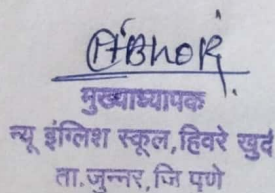 मुख्याध्यापक
न्यू इंग्लिश स्कूल, हिवरे खुर्द
ता. जुन्नर, जि पुणे